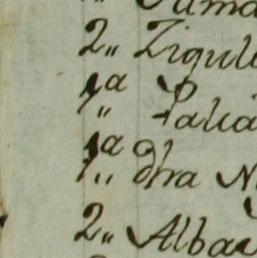 2„ Zigul
1a
1„ Palia
1a
1„ dha N
2„ Alba